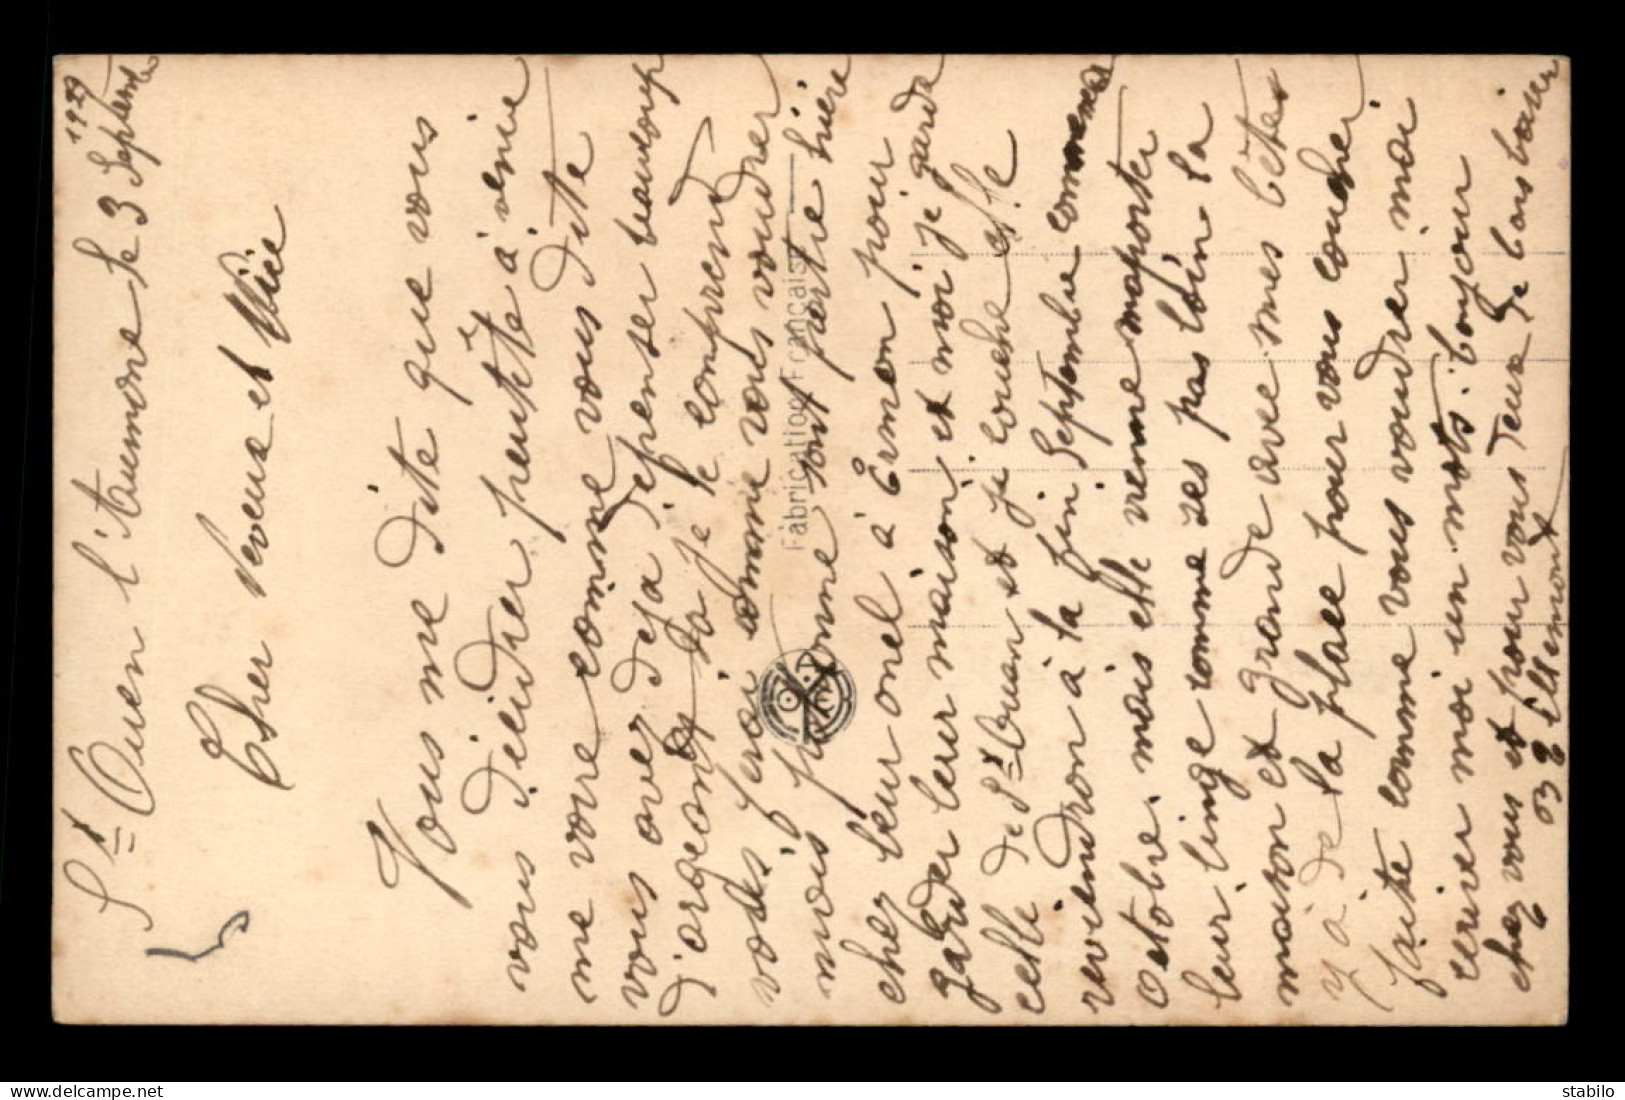 St Ouen l'Aumone le 3 Septembre
1929
Cher Neveux et Niéce
Vous me dite que vous
vous déidier peutètè à venir
me voire comme vous dite
vous avez deja depenser beaucoup
d'argeant je le comprend
vous ferai comme vous voudrer
mais personne sont partie hière
chez leur oncl à Ermon pour
garder leur maison et moi je garde
celle de St Ouan et je couche est le
reviendron à la fin Septembre commence
Octobre mais elle vienne maporter
leur linge comme ses pas loin la
maison et grande avec mes bêtes
y à de la place pour vous coucher
faite comme vous voudrer moi
ecriver moi un mots. bonjour
chez vous et pour vous deux de bons baiser
Ellemont
Fabrication Française
delcampe.net
stabilo